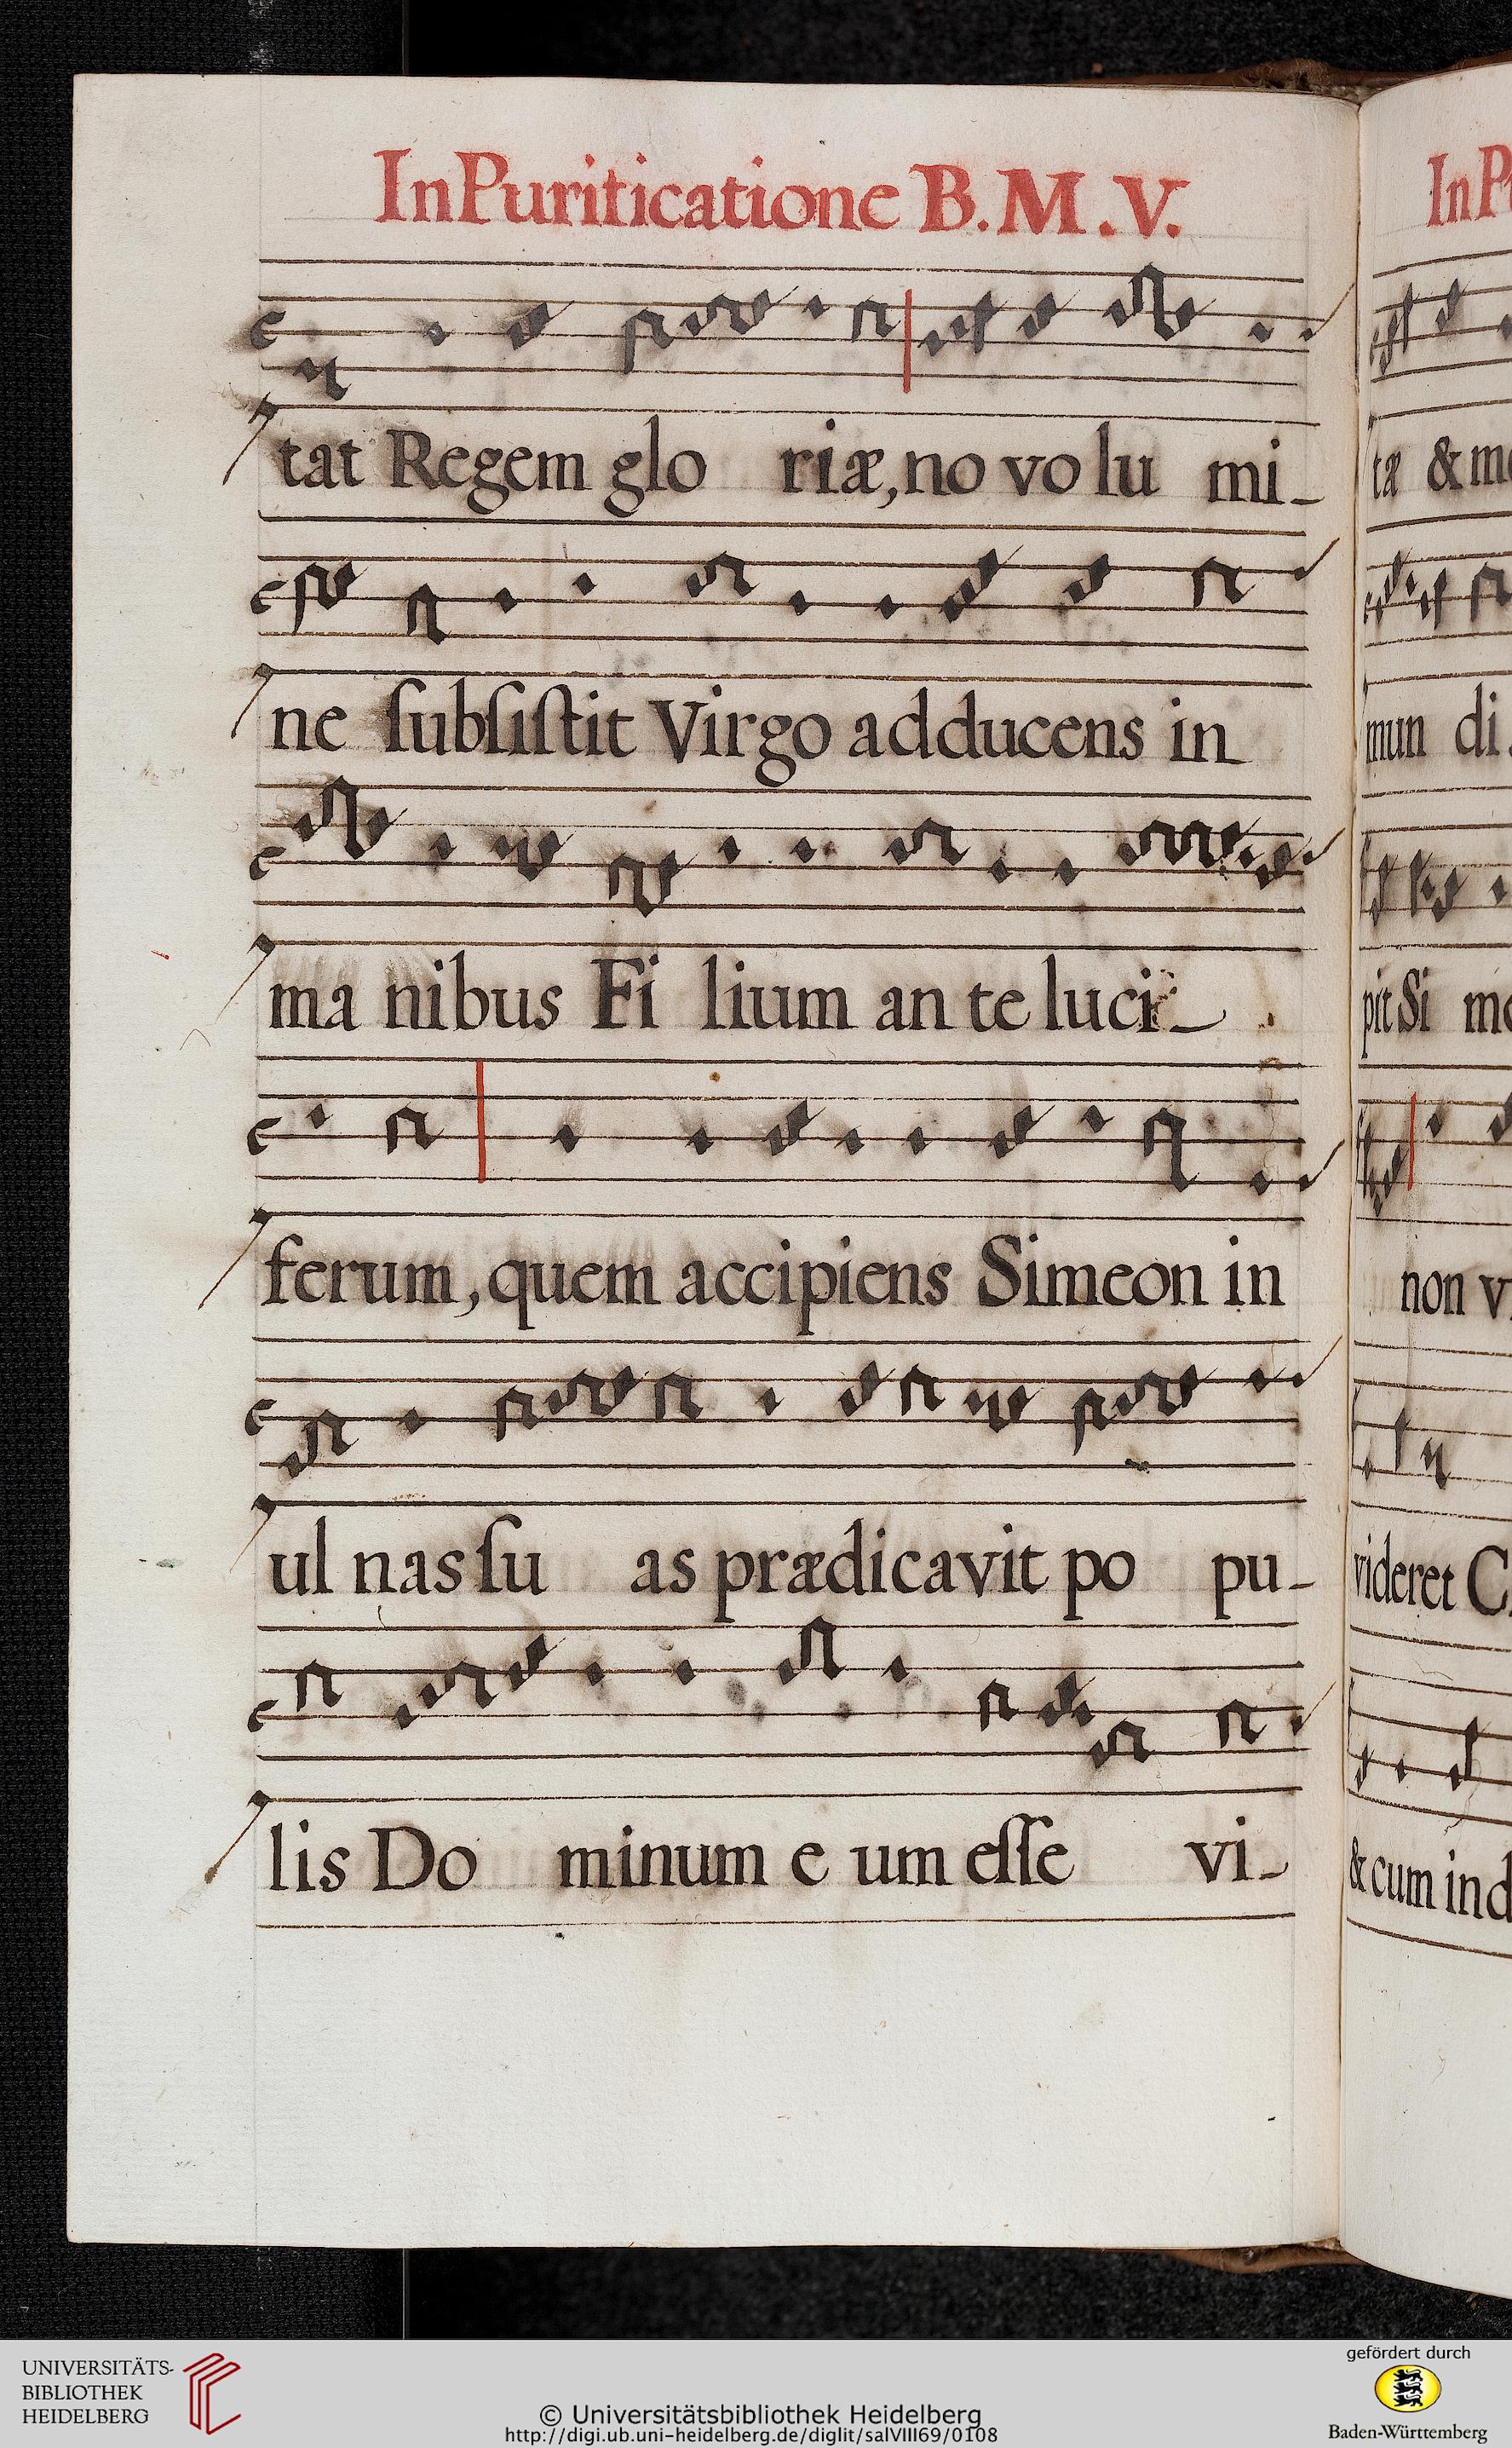 In Puriticatione B. M. V.
tat Regem glo riæ, no vo lu mi-
ne ſubſiſtit Virgo adducens in
ma nibus Fi lium an te luci-
ferum, quem accipiens Simeon in
ul nas ſu as prædicavit po pu-
lis Do minum e um eſſe vi-
In P
tæ & m
mun di
pit Si m
non v
videret C
& cum ind
UNIVERSITÄTS-
BIBLIOTHEK
HEIDELBERG
© Universitätsbibliothek Heidelberg
http://digi.ub.uni-heidelberg.de/diglit/salVIII69/0108
gefördert durch
Baden-Württemberg